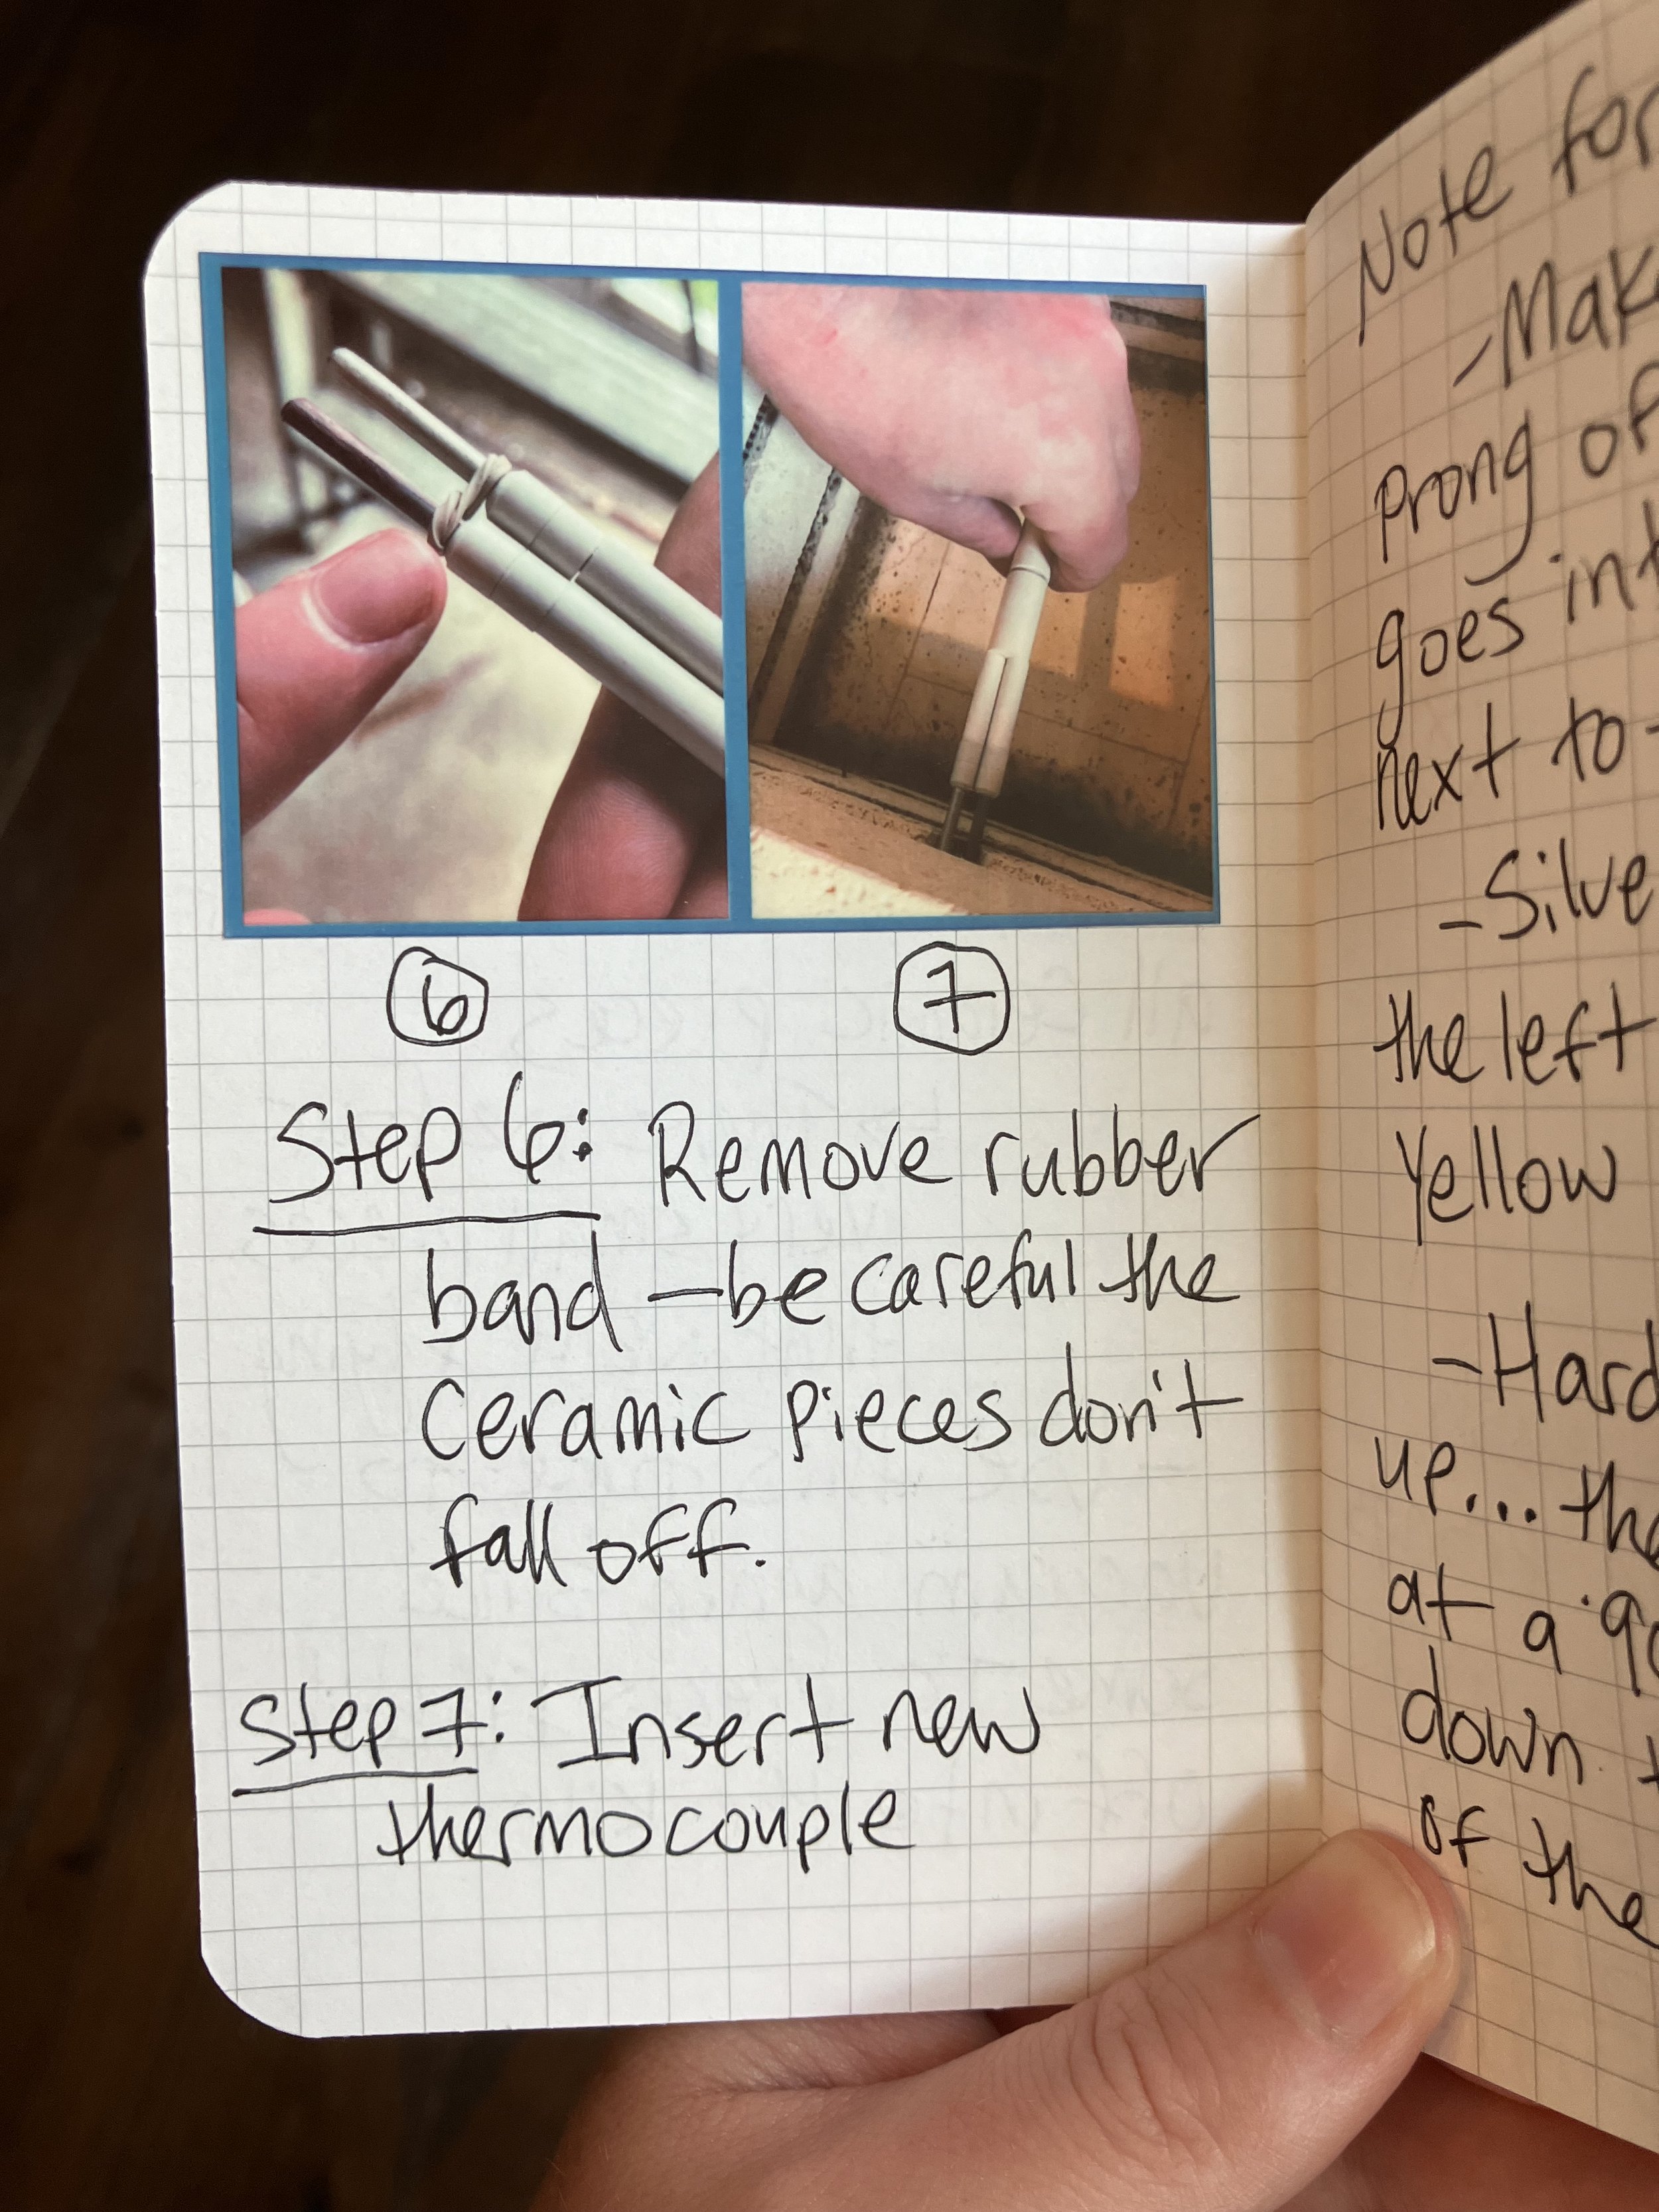 6
7
Step 6: Remove rubber
band – be careful the
ceramic pieces don't
fall off.
Step 7: Insert new
thermocouple
Note for
-Make
Prong of
goes int
next to
-Silve
the left
Yellow
-Hard
up... the
at a
down
of the